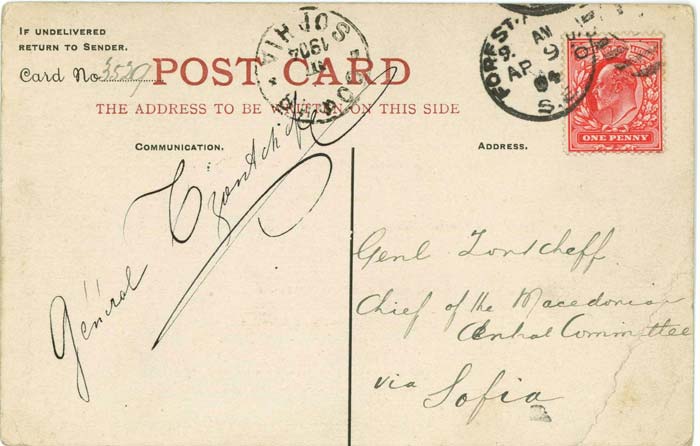 IF UNDELIVERED
RETURN TO SENDER.
Card No 3529
POST CARD
THE ADDRESS TO BE WRITTEN ON THIS SIDE
COMMUNICATION.
ADDRESS.
1904
FOREST
AM
AP 9
04
S.E
ONE PENNY
Général
Genl
Chief of the Macedonian
Central Committee
via Sofia